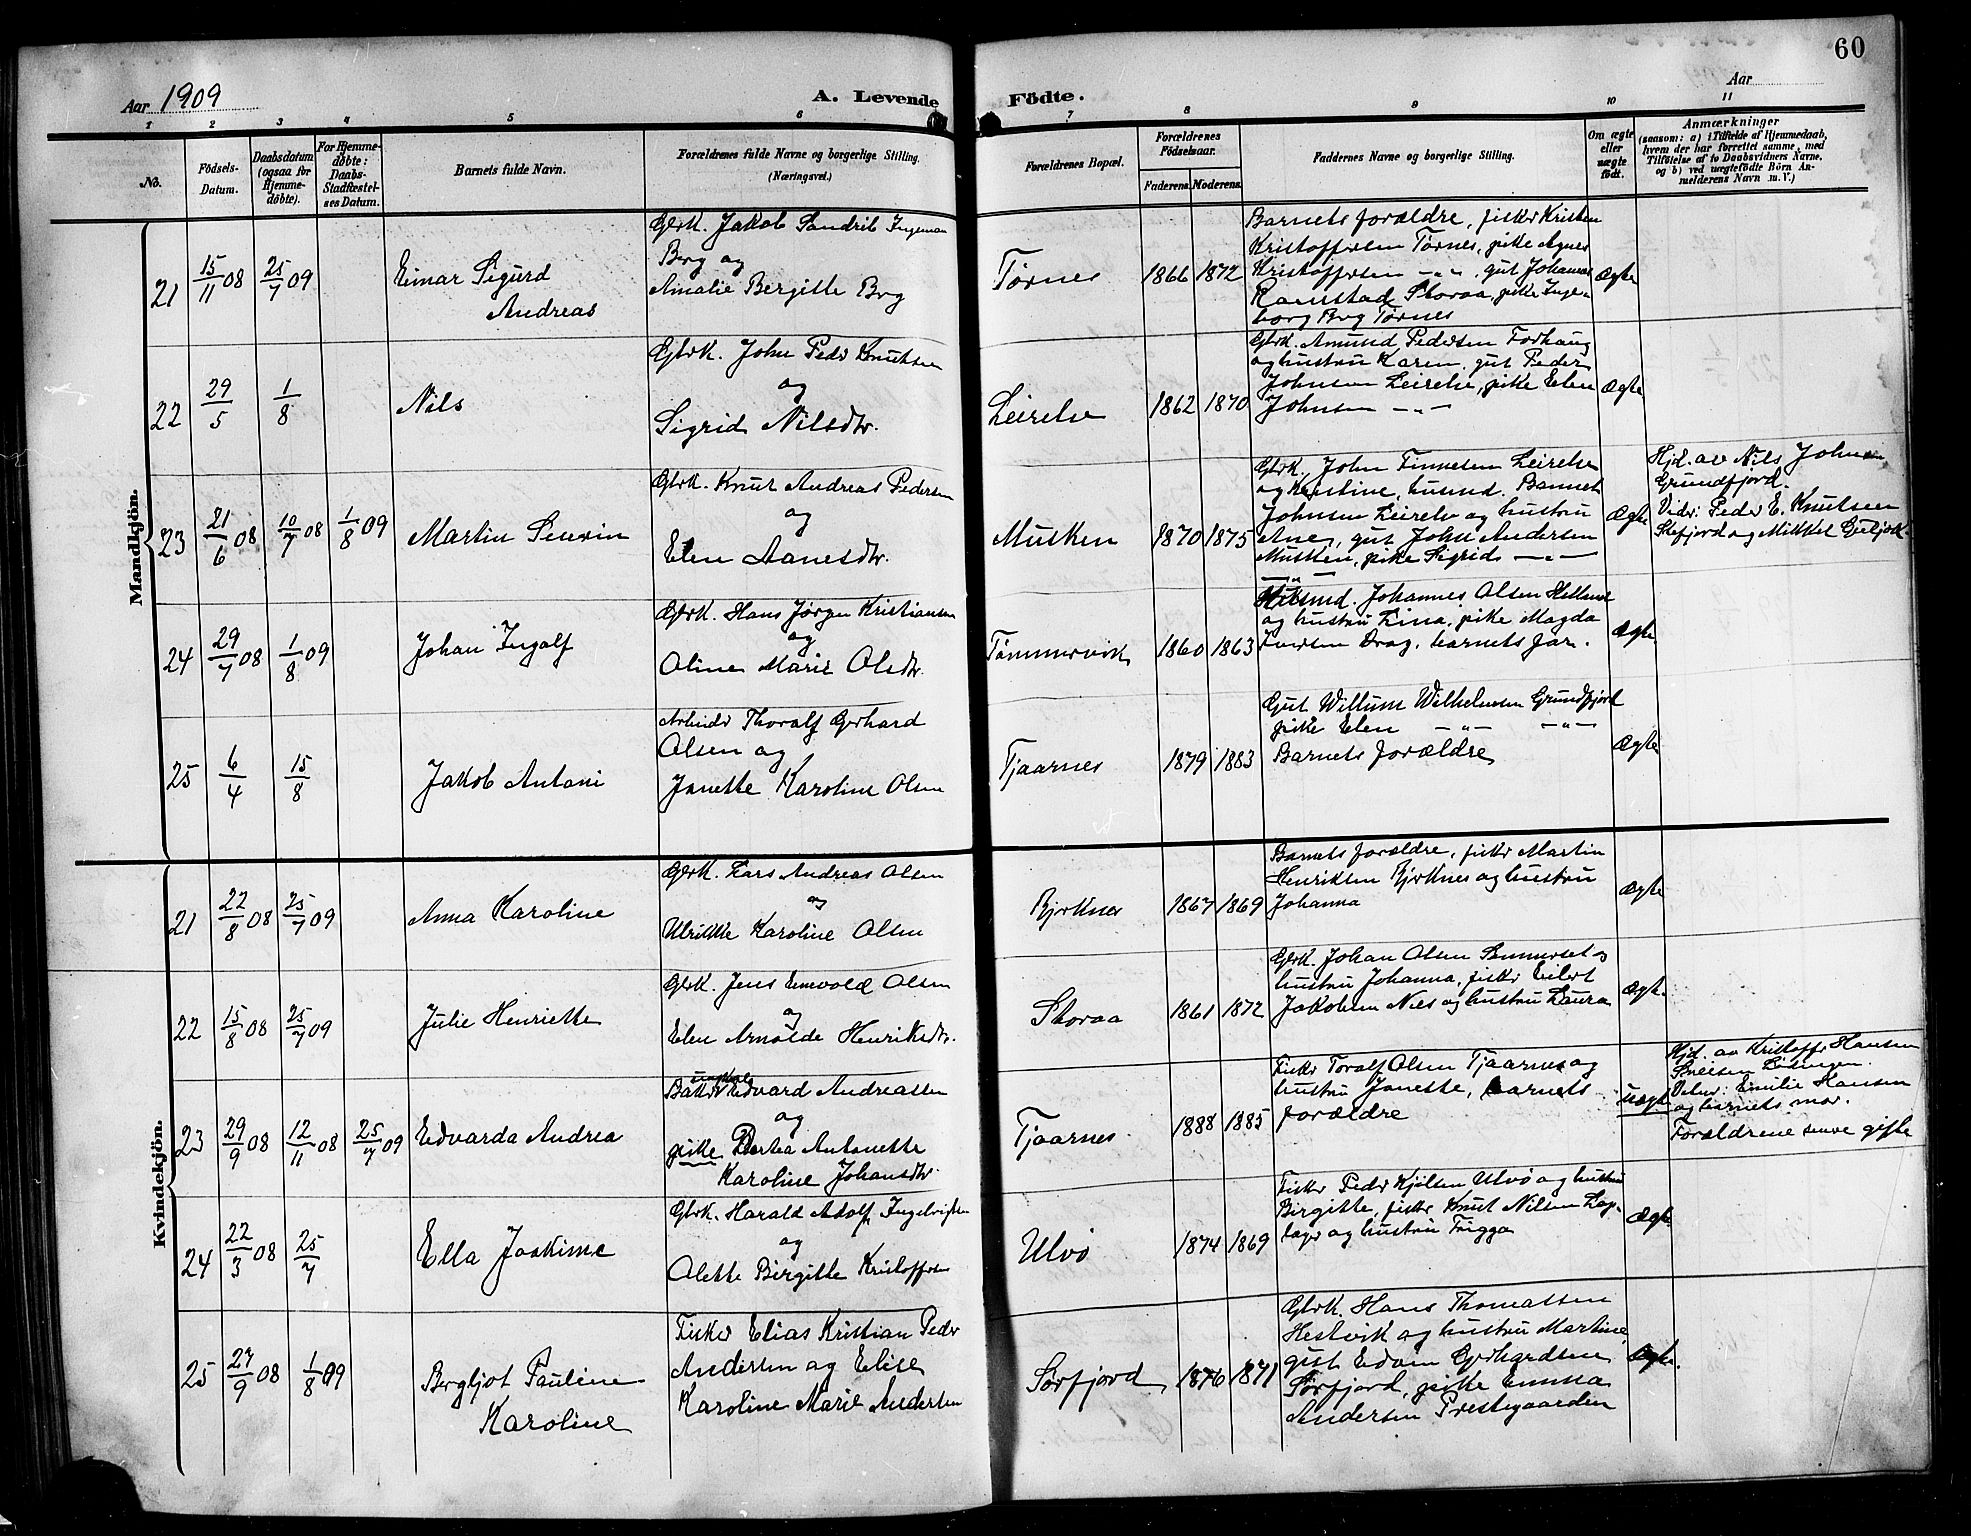 Aar 1909
A. Levende
Födte.
Aar
60
1 2 3 4 5 6 7 8 9 10 11
No.
Födsels-
Datum.
Daabsdatum
(ogsaa for
Hjemme-
döbte).
For Hjemme-
döbte:
Daabs-
Stadfæstel-
ses Datum.
Barnets fulde Navn.
Forældrenes fulde Navne og borgerlige Stilling.
(Næringsvei.)
Forældrenes Bopæl.
Forældrenes
Födselsaar.
Faderens. Moderens.
Faddernes Navne og borgerlige Stilling.
Om ægte
eller
uægte
födt.
Anmærkninger
(saasom: a) i Tilfælde af Hjemmedaab,
hvem der har forrettet samme, med
Tilföielse af to Daabsvidners Navne,
og b) ved uægtefödte Börn An-
melderens Navn m. V.)
Mandkjön.
21
15/11 08
25/7 09
Einar Sigurd
Andreas
Gbrk. Jakob Sandrib Ingeman
Berg og
Amalie Bergitte Brg
Tørnes
1866 1872
Barnets forældre, fiskr Kristen
Kristoffersen Tørnes, pike Agnes
Kristoffersen -"-, gut Johannes
Ramstad Storaa, pike Inge-
borg Brg Tørnes
Ægte
22
29/5
1/8
Nils
Gbrk. John Pedr Knutsen
og
Sigrid Nilsdtr.
Leirelv
1862 1870
Gbrk. Amund Pedersen Forhaug
og hustru Karen, gut Peder
Johnsen Leirelv, pike Elen
Johnsen -"-
Ægte
23
21/6 08
10/7 08
1/8 09
Martin Severin
Gbrk. Knut Andreas Pedersen
og
Elen Aanesdtr.
Musken
1870 1875
Gbrk. John Finnesen Leirelv
og Kristine, husmd.
Johnsen Leirelv og hustru
Ane, gut John Andersen
Musken, pike Sigrid -"-
-"-
Ægte
Hjd. av Nils Johnsen
Grundfjord.
Vidr: Pedr E. Knutsen
og Mikkel
24
29/7 08
1/8 09
Johan Ingolf
Gbrk. Hans Jørgen Kristiansen
og
Oline Marie Olsdtr.
Tømmervik
1860 1863
Husmd. Johannes Olsen Helland
og hustru Lina, pike Magda
Iversen Drag, barnets far.
Ægte
25
6/4
15/8
Jakob Antoni
Arbeidr Thoralf Gerhard
Olsen og
Janette Karoline Olsen
Tjaarnes
1879 1883
Gut Willum Wilhelmsen Grundfjord
pike Elen -"- -"-
Barnets forældre
Ægte
Kvindekjön.
21
22/8 08
25/7 09
Anna Karoline
Gbrk. Lars Andreas Olsen
og
Ulrikke Karoline Olsen
Bjrknes
1867 1869
Barnets forældre, fiskr Martin
Henriksen Bjrknes og hustru
Johanna
Ægte
22
15/8 08
25/7 09
Julie Henriette
Gbrk. Jens Enevold Olsen
og
Elen Arnolde Henriksdtr.
Storaa
1861 1872
Gbrk. Johan Olsen Sommerset og
hustru Johanna, fiskr Eilert
Jakobsen Nes og hustru Laura
Ægte.
23
29/9 08
12/11 08
25/7 09
Edvarda Andrea
ungkar
Edvard Andreassen
og
pike Dortea Antonette
Karoline Johansdtr.
Tjaarnes
1888 1885
Fiskr Toralf Olsen Tjaarnes og
hustru Janette, barnets
forældre
uægte
Hjd. av Kristoffr Hansen
Vidner: Emilie Hansen
og barnets mor.
Forældrene senere gifte
24
22/3 08
25/7
Ella Joakime
Gbrk. Harald Adolf Ingebrigtsen
og
Alette Birgitte Kristoffersen
Ulvø
1874 1869
Fiskr Pedr Kjilsen Ulvø og hustru
Birgitte, fiskr Knut Nilsen Lap-
lagr og hustru Frigga
Ægte
25
27/9 08
1/8 09
Bergljot Pauline
Karoline
Fisker Elias Kristian Pedr
Andersen og Elise
Karoline Marie Andersen
Sørfjord
1876 1871
Gbrk. Hans Thomassen
Hestvik og hustru Martine,
gut Edvin Gerhardsen
Sørfjord, pike Emma
Andersen Prestegaarden
Ægte.